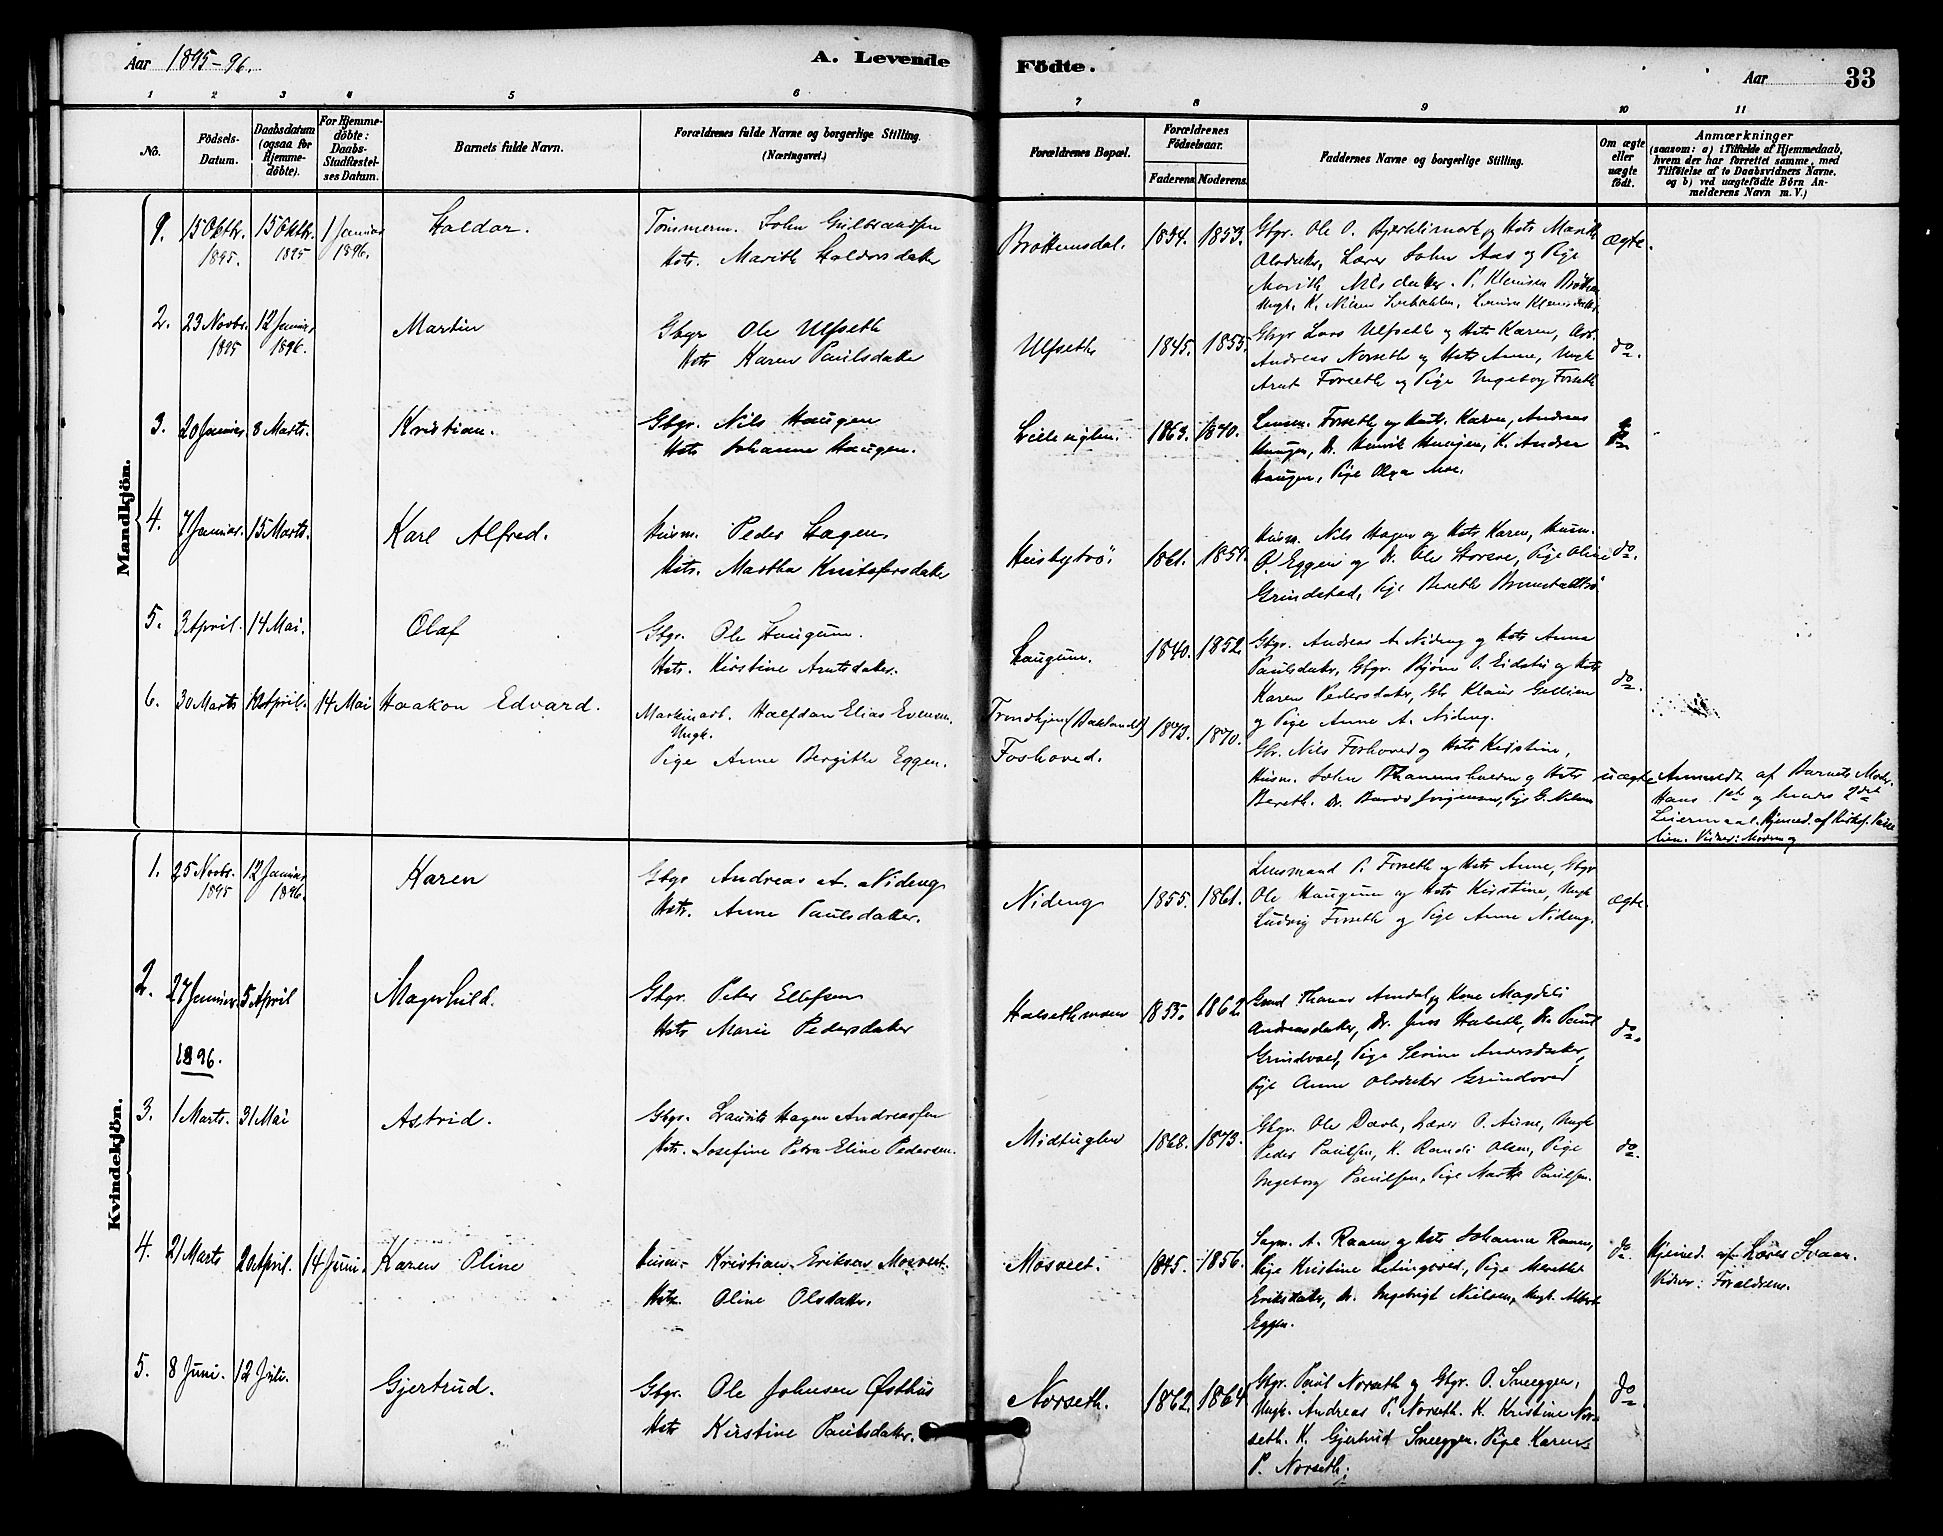 Aar 1895-96.
A. Levende
Födte.
Aar
33
1 2 3 4 5 6 7 8 9 10 11
No.
Födsels-Datum.
Daabsdatum (ogsaa for Hjemmedöbte).
For Hjemmedöbte: Daabs-Stadfæstelses Datum.
Barnets fulde Navn.
Forældrenes fulde Navne og borgerlige Stilling. (Næringsvei.)
Forældrenes Bopæl.
Forældrenes Födselsaar.
Faderens. Moderens.
Faddernes Navne og borgerlige Stilling.
Om ægte eller uægte födt.
Anmærkninger
(saasom: a) i Tilfælde af Hjemmedaab, hvem der har forrettet samme, med Tilföielse af to Daabsvidners Navne, og b) ved uægtefödte Börn Anmelderens Navn m. V.)
Mandkjön.
15 Oktbr. 1895. 15 Oktbr. 1895 1 Januar 1896.
Haldor.
Tömmerm. John Gulbrandsen
Hstr. Marith Haldorsdatter
Brøttemsdal. 1834. 1853.
ægte.
2. 23 Novbr. 1895 12 Januar 1896.
Martin
Gbgr Ole Ulfseth
Hstr Karen Paulsdatter
Ulfseth 1845. 1855.
Gbgr Lars Ulfseth og Hstr Karen,
Andreas Norseth og Hstr Anne, Ungk
Arnt Forseth og Pige Ingeborg Forseth
do.
3. 20 Januar. 8 Marts.
Kristian.
Gbgr. Nils Haugen
Hstr Johanne Haugen.
1863. 1840.
Lensm. Forseth og Hustr. Karen, Andreas
Haugen, Dr. Henrik Haugen, K. Andrea
Haugen, Pige Olga Moe.
4. 7 Januar. 15 Marts.
Karl Alfred.
Husm. Peder Hagen
Hstr. Martha Knutsdatter
Husbytrø. 1861.
Husm. Nils Hagen og Hstr Karen, Husm.
Grindstad, Pige Bereth
do.
5. 3 April. 14 Mai.
Olaf
Gbgr. Ole Haugum.
Hstr. Kirstine Arntsdatter.
Haugum. 1840. 1852.
Gbgr. Andreas A. Nideng og Hstr Anna
Paulsdatter, Gbgr. Bjørn O. Eidsli og Hstr
Karen Pedersdatter, Gbr Klaus Gellien
og Pige Anne A. Nideng.
do.
6. 30 Marts April. 14 Mai
Haakon Edvard.
Maskinarb. Halfdan Elias Evensen
Ungk.
Pige Anne Bergithe Eggen.
Trondhjem (Baklandet)
Foshoved.
1873. 1870.
Gbr. Nils Foshoved og Hstr Kirstine,
uægte
Anmeldt af Barnets Moder.
Hans 1ste og hendes 2det
Leiermaal.
Kvindekjön.
1. 25 Novbr. 1895 12 Januar 1896.
Karen
Gbgr Andreas A. Nideng
Hstr. Anne Paulsdatter.
Nideng 1855. 1861.
Lensmand P. Forseth og Hstr Anne, Gbgr
Ole Haugum og Hstr Kirstine, Ungk
Ludvig Forseth og Pige Anne Nideng.
ægte.
2. 27 Januar 5 April
1896.
Magnhild.
Gbgr. Peter Ellefsen
Hstr Marie Pedersdatter
Halsethmoen 1855. 1862
Andreasdatter, Dr. Jens Halseth, Dr. Paul
Grindvoed, Pige Serine Andersdatter,
Pige Anne Olsdatter Grindvoed
do.
3. 1 Marts. 31 Mai
Astrid.
Gbgr. Laurits Hagen Andreassen
Hstr. Josefine Petra Eline Pedersen.
Midtuglen 1868. 1873.
Gbgr. Ole Dark, Lærer O. Aune, Ungk
Peder Paulsen, K. Randi Olsen, Pige
Ingeborg Paulsen, Pige Martha Paulsen.
do.
4. 21 Marts April. 14 Juni.
Karen Oline
Husm. Kristian Eriksen Mosveet.
Hstr. Oline Olsdatter.
Mosveet. 1845. 1856.
Sagm. A. Raaen og Hstr Johanna Raaen,
Pige Kristine Pige Merethe
Eriksdatter, Dr. Ingebrigt Nielsen, Ungk. Albert
Eggen.
do.
Hjemmed. af Lærer Svaan.
Vidner: Forældrene.
5. 8 Juni. 12 Juli.
Gjertrud.
Gbgr. Ole Johnsen Østhus
Hstr Kirstine Paulsdatter.
Norseth. 1862. 1864
Gbgr. Paul Norseth og Gbgr. O. Sneeggen,
Ungk. Andreas P. Norseth. K. Kristine Nor-
seth. K. Gjertrud Sneeggen. Pige Karen
P. Norseth.
do.